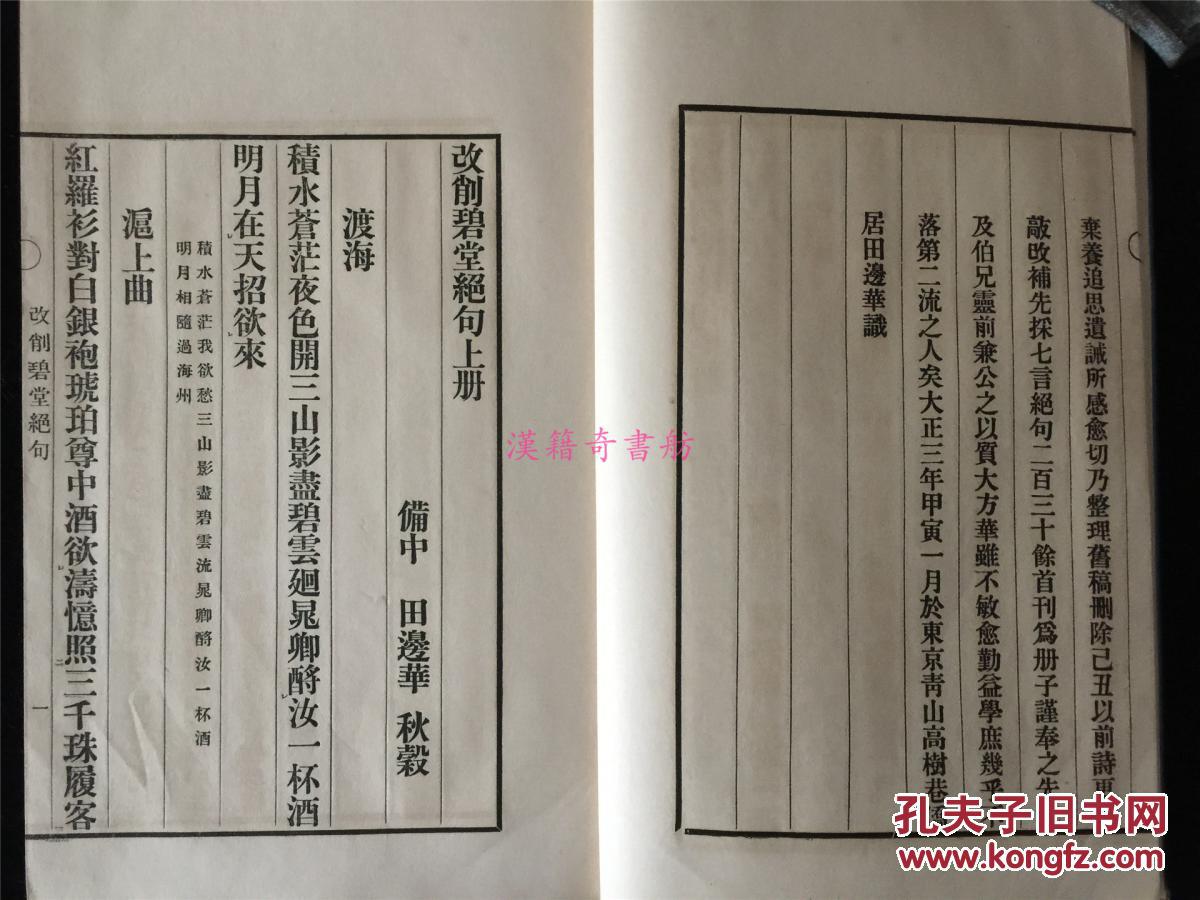 棄養追思遺誡所感愈切乃整理舊稿刪除己丑以前詩更
敲改補先採七言絕句二百三十餘首刊爲册子謹奉之先
及伯兄靈前兼公之以質大方華雖不敏愈勤益學庶幾乎
落第二流之人矣大正三年甲寅一月於東京青山高樹巷
居田邊華識
改削碧堂絕句上册
備中 田邊華 秋穀
渡海
積水蒼茫夜色開三山影盡碧雲廻晁卿酹汝一杯酒
明月在天招欲來
積水蒼茫我欲愁三山影盡碧雲流晁卿酹汝一杯酒
明月相隨過海州
滬上曲
紅羅衫對白銀袍琥珀尊中酒欲濤憶照三千珠履客
改削碧堂絕句
一
漢籍奇書舫
孔夫子旧书网
www.kongfz.com